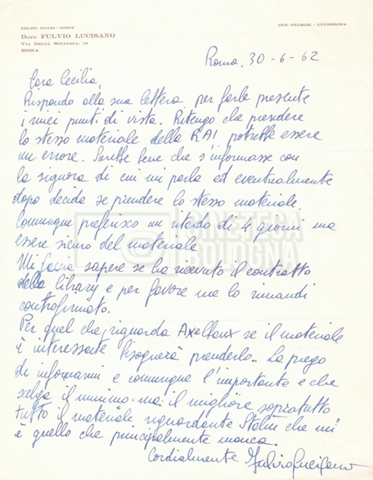 DOTT. FULVIO LUCISANO
ROMA
Roma, 30-6-62
Cara Cecilia,
Rispondo alla sua lettera, per farle presente
i miei punti di vista. Ritengo che prendere
lo stesso materiale della RAI potrebbe essere
un errore. Sarebbe bene che s'informasse con
la signora di cui mi parla ed eventualmente
dopo decida se prendere lo stesso materiale.
Comunque preferisco un ritardo di 4 giorni ma
essere sicuro del materiale
Mi faccia sapere se ha ricevuto il contratto
della library e per favore me lo rimandi
controfirmato.
Per quel che riguarda se il materiale
è interessante bisognerà prenderlo. La prego
di informarmi e comunque l'importante è che
scelga il minimo ma il migliore, sopratutto
tutto il materiale riguardante Stalin che mi
è quello che principalmente manca.
Cordialmente Fulvio Lucisano
CINETECA
BOLOGNA